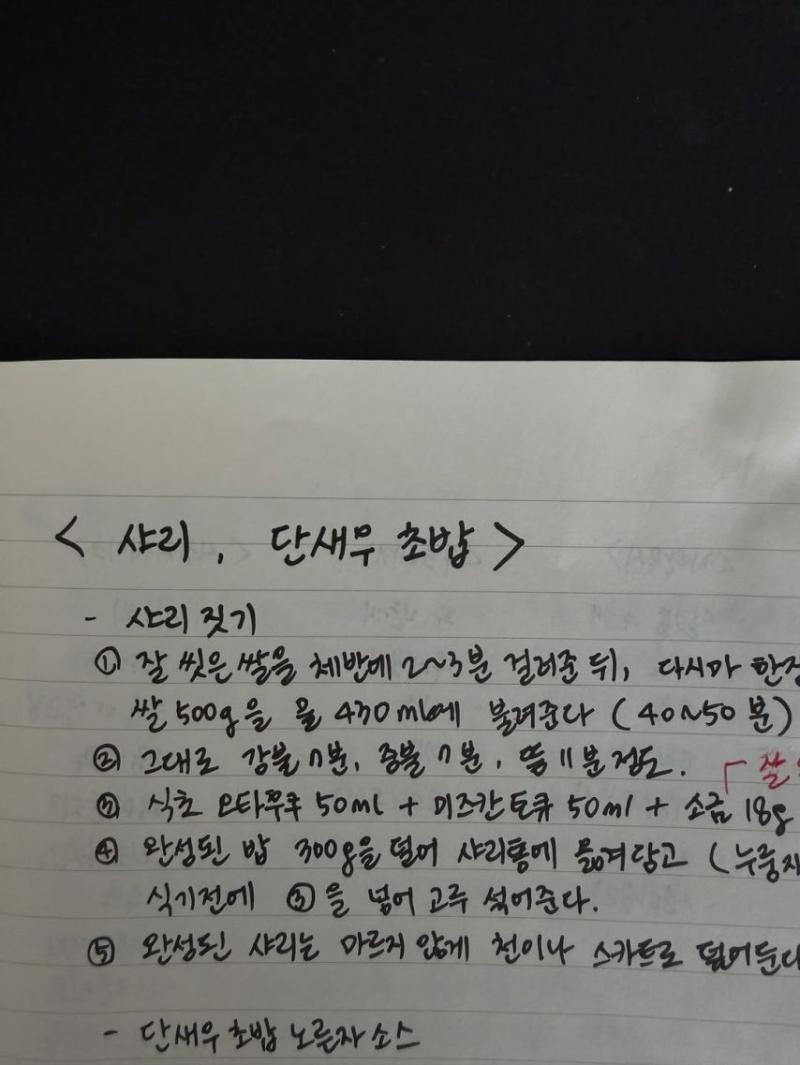 < 샤리, 단새우 초밥 >
- 샤리 짓기
① 잘 씻은 쌀을 체반에 2~3분 걸러준 뒤, 다시마 한장
쌀 500g을 물 430ml에 불려준다 (40~50분)
② 그대로 강불 7분, 중불 7분, 뜸 11분 정도.
잘
③ 식초 오타푸쿠 50ml + 미즈칸 토큐 50ml + 소금 18g
④ 완성된 밥 300g을 덜어 샤리통에 옮겨담고 (누룽지
식기전에 ③을 넣어 고루 섞어준다.
⑤ 완성된 샤리는 마르지 않게 천이나 스카트로 덮어둔다
- 단새우 초밥 노른자 소스